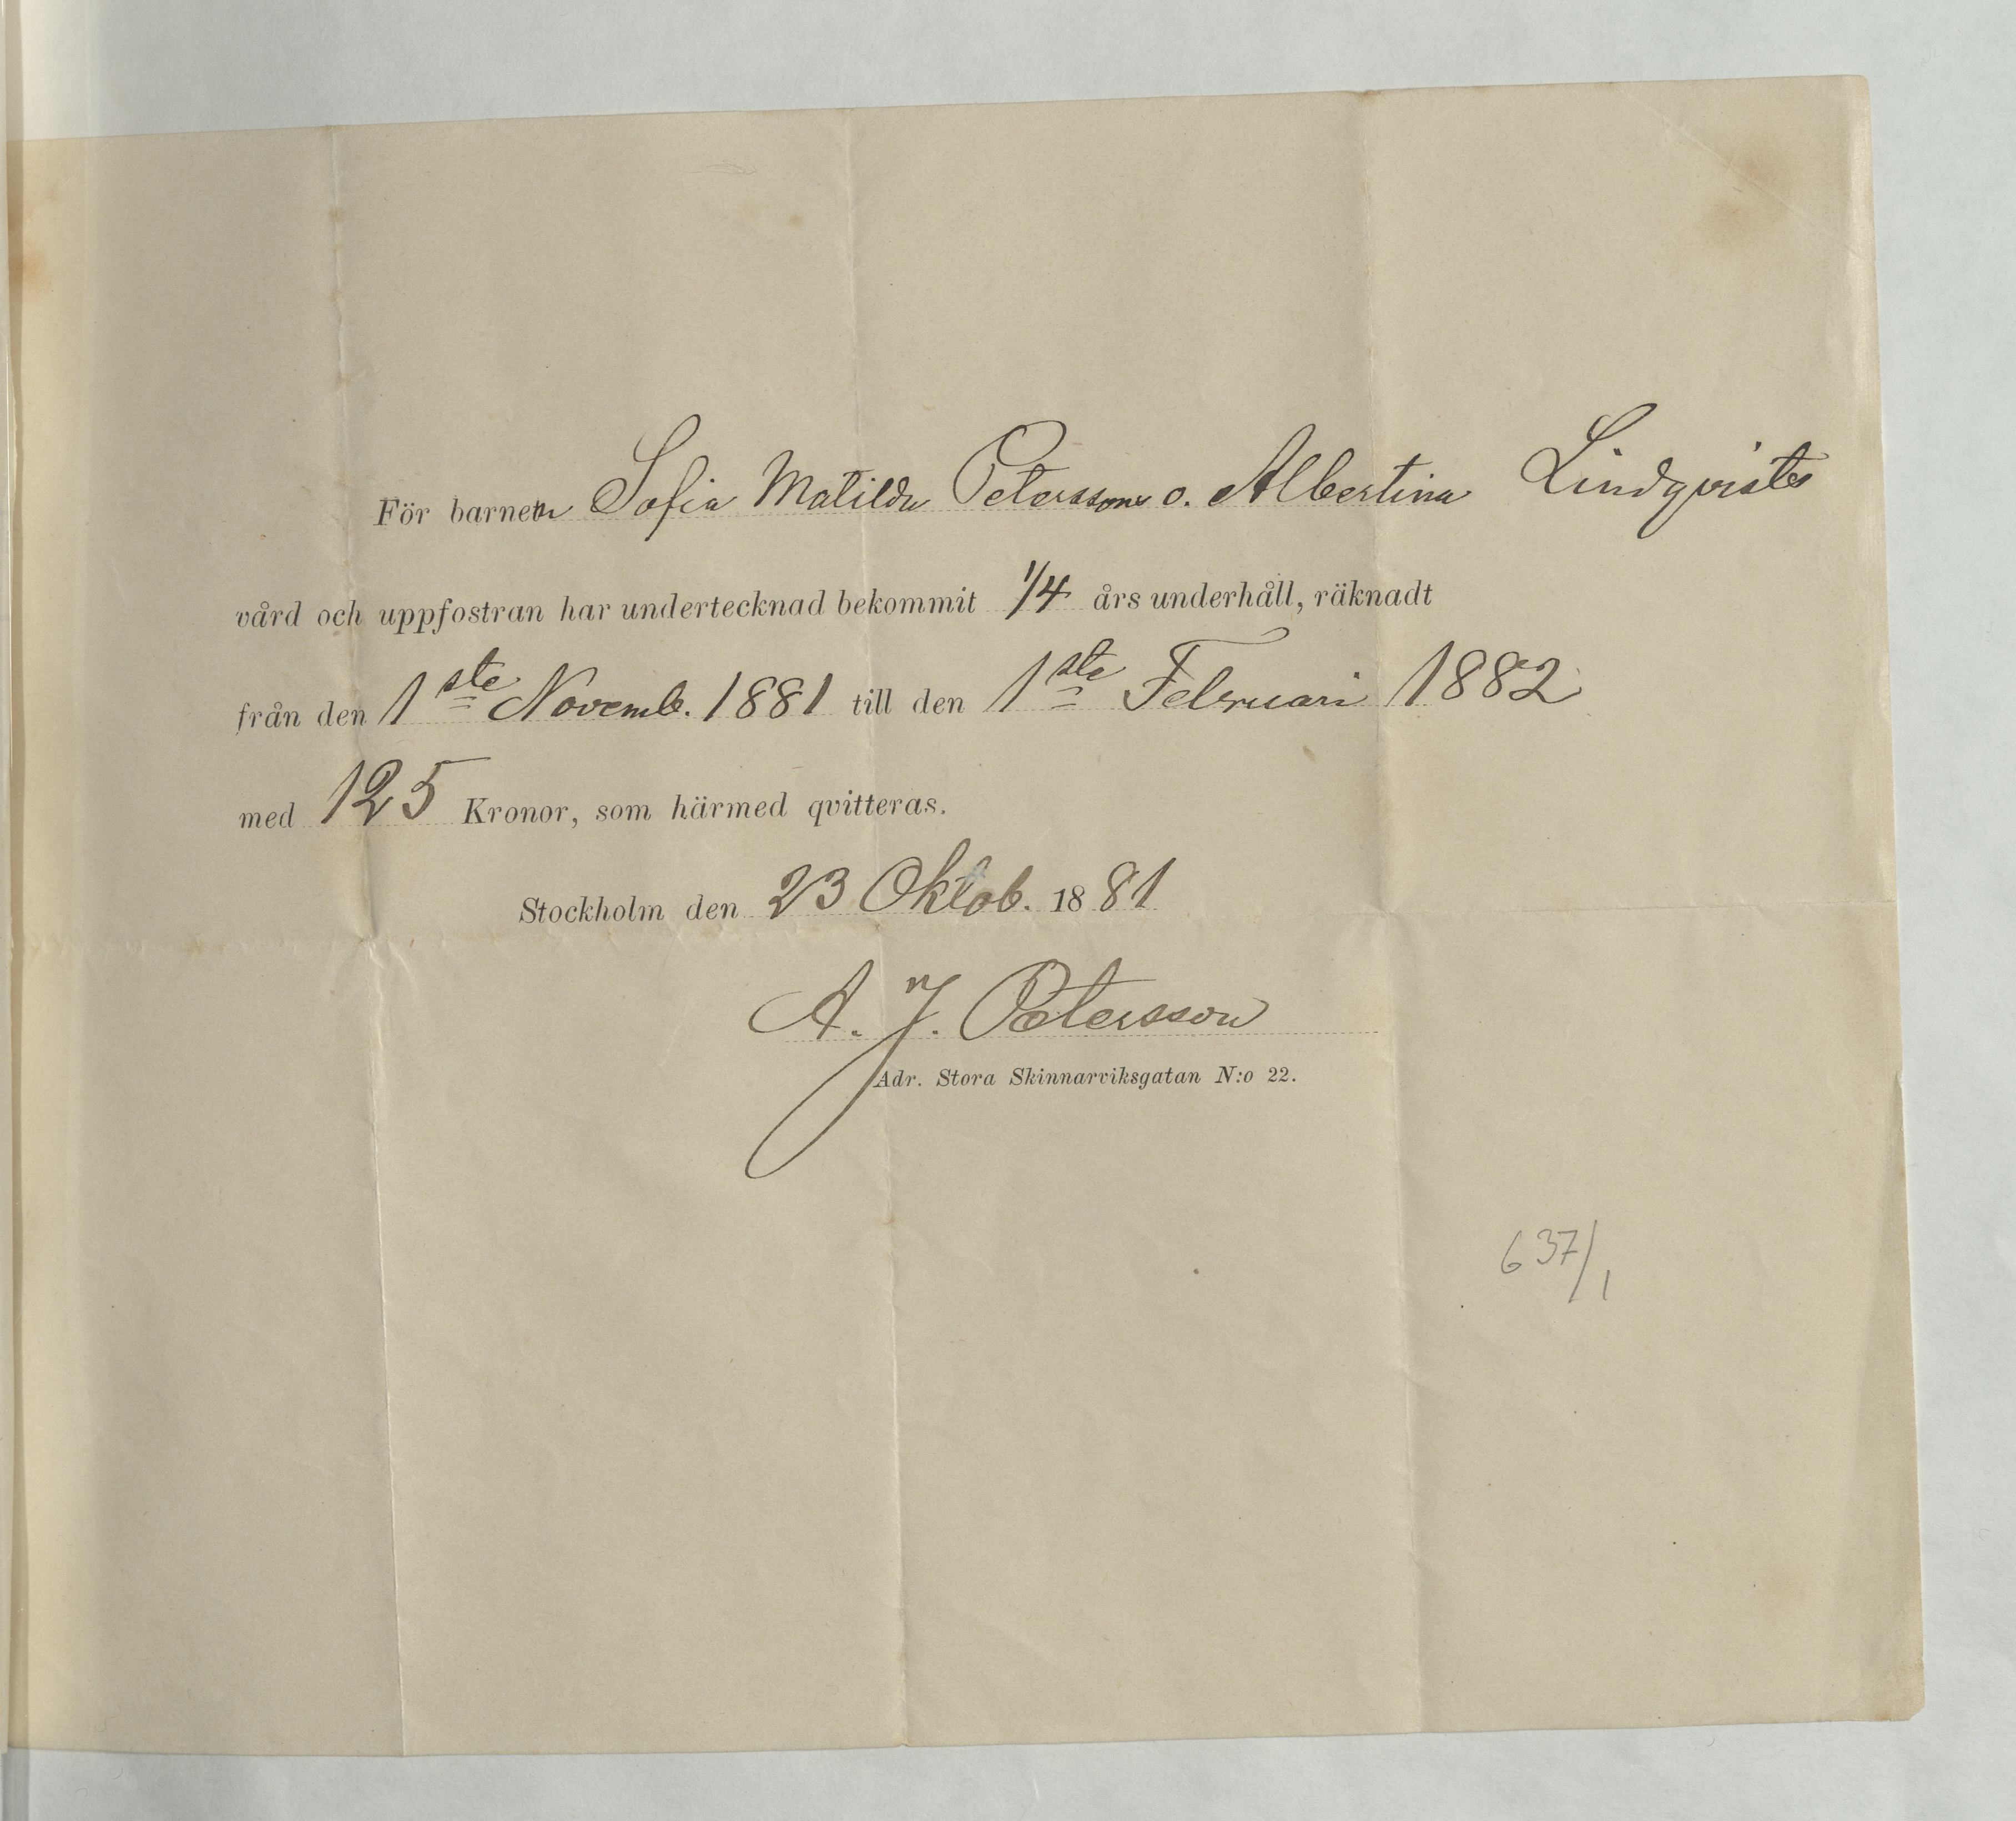 För barnen Sofia Matilda Peterssons o. Albertina Lindqvists
vård och uppfostran har undertecknad bekommit 1/4 års underhåll, räknadt
från den 1ste Novemb. 1881 till den 1ste Februari 1882
med 125 Kronor, som härmed qvitteras.
Stockholm den 23 Oktob. 1881
A. J. Petersson
Adr. Stora Skinnarviksgatan N:o 22.
637/1